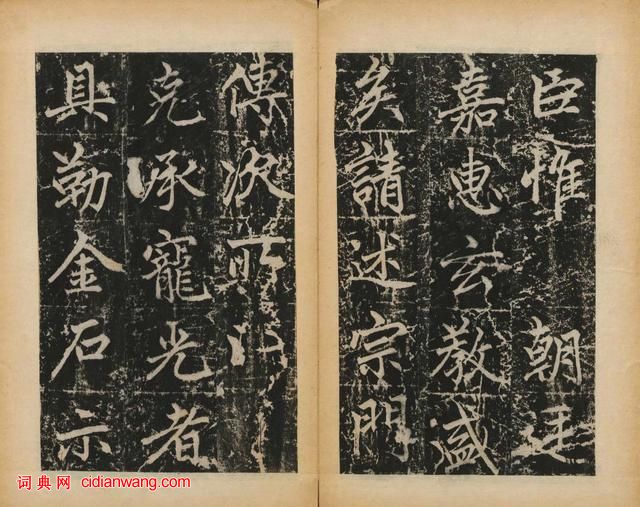 臣惟 朝廷
嘉惠玄教盛
矣請述宗門
傳次所以
克承寵光者
具勒金石示
词典网 cidianwang.com